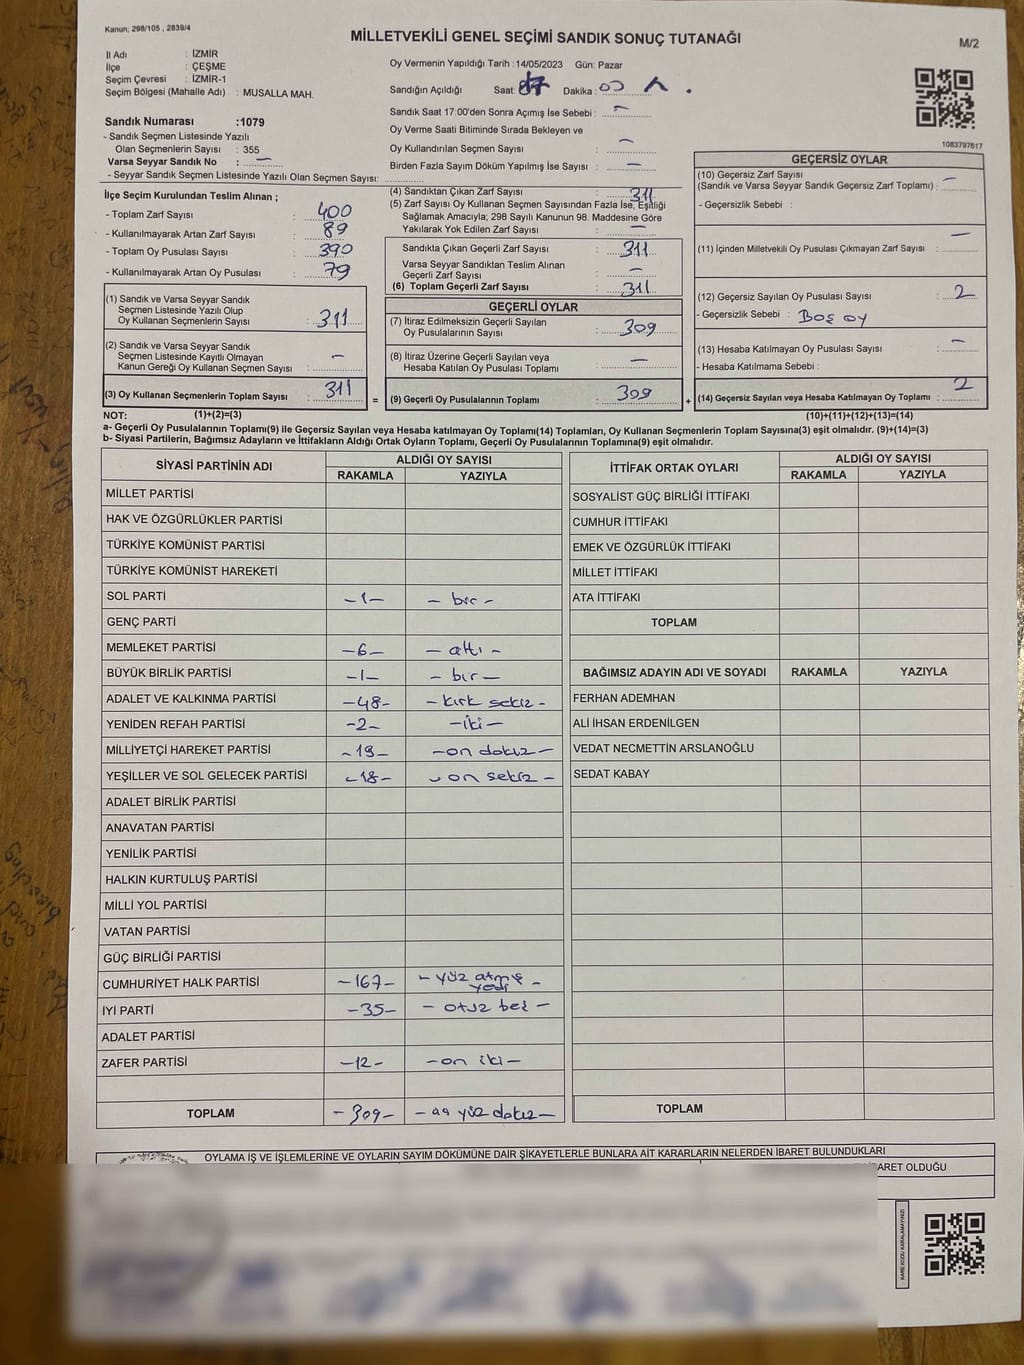 Kanun; 298/105 , 2839/4
MİLLETVEKİLİ GENEL SEÇİMİ SANDIK SONUÇ TUTANAĞI
M/2
İl Adı : İZMİR
İlçe : ÇEŞME
Seçim Çevresi : İZMİR-1
Seçim Bölgesi (Mahalle Adı) : MUSALLA MAH.
Sandık Numarası :1079
- Sandık Seçmen Listesinde Yazılı
Olan Seçmenlerin Sayısı : 355
Varsa Seyyar Sandık No : —
- Seyyar Sandık Seçmen Listesinde Yazılı Olan Seçmen Sayısı:
Oy Vermenin Yapıldığı Tarih :14/05/2023 Gün: Pazar
Sandığın Açıldığı Saat: Dakika:
Sandık Saat 17:00'den Sonra Açımış İse Sebebi : —
Oy Verme Saati Bitiminde Sırada Bekleyen ve
Oy Kullandırılan Seçmen Sayısı : —
Birden Fazla Sayım Döküm Yapılmış İse Sayısı : —
1083797617
İlçe Seçim Kurulundan Teslim Alınan ;
- Toplam Zarf Sayısı : 400
- Kullanılmayarak Artan Zarf Sayısı : 89
- Toplam Oy Pusulası Sayısı : 390
- Kullanılmayarak Artan Oy Pusulası : 79
(1) Sandık ve Varsa Seyyar Sandık
Seçmen Listesinde Yazılı Olup
Oy Kullanan Seçmenlerin Sayısı : 311
(2) Sandık ve Varsa Seyyar Sandık
Seçmen Listesinde Kayıtlı Olmayan
Kanun Gereği Oy Kullanan Seçmen Sayısı : —
(3) Oy Kullanan Seçmenlerin Toplam Sayısı : 311
=
(4) Sandıktan Çıkan Zarf Sayısı : 311
(5) Zarf Sayısı Oy Kullanan Seçmen Sayısından Fazla İse, Eşitliği
Sağlamak Amacıyla; 298 Sayılı Kanunun 98. Maddesine Göre
Yakılarak Yok Edilen Zarf Sayısı : —
Sandıkta Çıkan Geçerli Zarf Sayısı : 311
Varsa Seyyar Sandıktan Teslim Alınan
Geçerli Zarf Sayısı : —
(6) Toplam Geçerli Zarf Sayısı : 311
GEÇERLİ OYLAR
(7) İtiraz Edilmeksizin Geçerli Sayılan
Oy Pusulalarının Sayısı : 309
(8) İtiraz Üzerine Geçerli Sayılan veya
Hesaba Katılan Oy Pusulası Toplamı : —
(9) Geçerli Oy Pusulalarının Toplamı : 309
+
GEÇERSİZ OYLAR
(10) Geçersiz Zarf Sayısı
(Sandık ve Varsa Seyyar Sandık Geçersiz Zarf Toplamı) : —
- Geçersiz Sebebi :
(11) İçinden Milletvekili Oy Pusulası Çıkmayan Zarf Sayısı : —
(12) Geçersiz Sayılan Oy Pusulası Sayısı : 2
- Geçersizlik Sebebi : BOŞ OY
(13) Hesaba Katılmayan Oy Pusulası Sayısı : —
- Hesaba Katılmama Sebebi :
(14) Geçersiz Sayılan veya Hesaba Katılmayan Oy Toplamı : 2
NOT: (1)+(2)=(3) (10)+(11)+(12)+(13)=(14)
a- Geçerli Oy Pusulalarının Toplamı(9) ile Geçersiz Sayılan veya Hesaba katılmayan Oy Toplamı(14) Toplamları, Oy Kullanan Seçmenlerin Toplam Sayısına(3) eşit olmalıdır. (9)+(14)=(3)
b- Siyasi Partilerin, Bağımsız Adayların ve İttifakların Aldığı Ortak Oyların Toplamı, Geçerli Oy Pusulalarının Toplamına(9) eşit olmalıdır.
SİYASİ PARTİNİN ADI ALDIĞI OY SAYISI
RAKAMLA YAZIYLA
MİLLET PARTİSİ
HAK VE ÖZGÜRLÜKLER PARTİSİ
TÜRKİYE KOMÜNİST PARTİSİ
TÜRKİYE KOMÜNİST HAREKETİ
SOL PARTİ —1— — bir —
GENÇ PARTİ
MEMLEKET PARTİSİ —6— — altı —
BÜYÜK BİRLİK PARTİSİ —1— — bir —
ADALET VE KALKINMA PARTİSİ —48— — kırk sekiz —
YENİDEN REFAH PARTİSİ —2— —iki—
MİLLİYETÇİ HAREKET PARTİSİ —19— —on dokuz—
YEŞİLLER VE SOL GELECEK PARTİSİ —18— — on sekiz —
ADALET BİRLİK PARTİSİ
ANAVATAN PARTİSİ
YENİLİK PARTİSİ
HALKIN KURTULUŞ PARTİSİ
MİLLİ YOL PARTİSİ
VATAN PARTİSİ
GÜÇ BİRLİĞİ PARTİSİ
CUMHURİYET HALK PARTİSİ —167— — yüz atmış yedi —
İYİ PARTİ —35— — otuz beş —
ADALET PARTİSİ
ZAFER PARTİSİ —12— —on iki—
TOPLAM —309— — yüz dokuz—
İTTİFAK ORTAK OYLARI ALDIĞI OY SAYISI
RAKAMLA YAZIYLA
SOSYALİST GÜÇ BİRLİĞİ İTTİFAKI
CUMHUR İTTİFAKI
EMEK VE ÖZGÜRLÜK İTTİFAKI
MİLLET İTTİFAKI
ATA İTTİFAKI
TOPLAM
BAĞIMSIZ ADAYIN ADI VE SOYADI RAKAMLA YAZIYLA
FERHAN ADEMHAN
ALİ İHSAN ERDENİLGEN
VEDAT NECMETTİN ARSLANOĞLU
SEDAT KABAY
TOPLAM
OYLAMA İŞ VE İŞLEMLERİNE VE OYLARIN SAYIM DÖKÜMÜNE DAİR ŞİKAYETLERLE BUNLARA AİT KARARLARIN NELERDEN İBARET BULUNDUKLARI
BARET OLDUĞU
KARE KODU KARALAMAYINIZ!